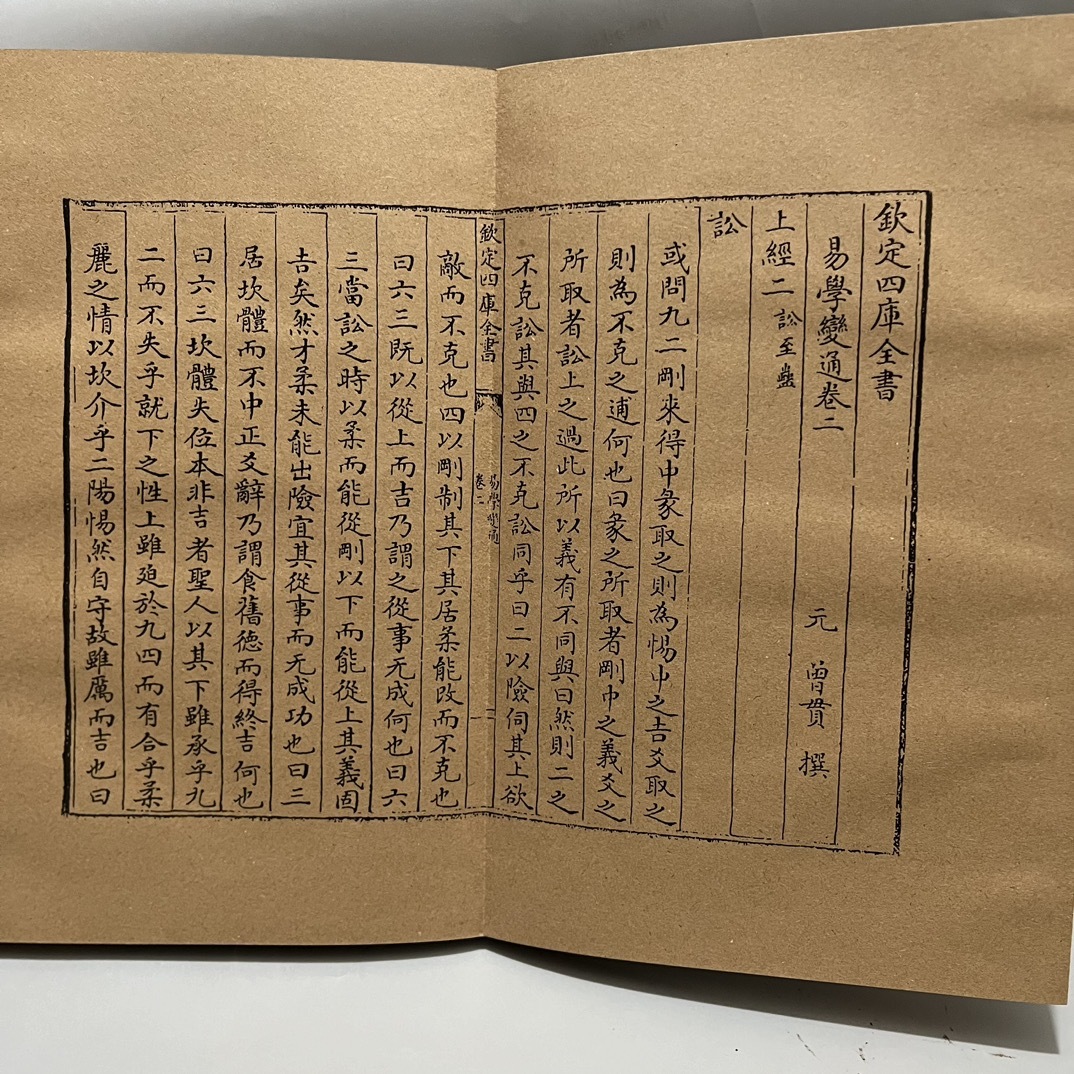 欽定四庫全書
易學變通卷二
元 曾貫 撰
上經二 訟至蠱
訟
或問九二剛來得中彖取之則為惕中之吉爻取之
則為不克之逋何也曰彖之所取者剛中之義爻之
所取者訟上之過此所以義有不同與曰然則二之
不克訟其與四之不克訟同乎曰二以險伺其上欲
欽定四庫全書
易學變通
卷二
一
敵而不克也四以剛制其下其居柔能改而不克也
曰六三既以從上而吉乃謂之從事无成何也曰六
三當訟之時以柔而能從剛以下而能從上其義固
吉矣然才柔未能出險宜其從事而无成功也曰三
居坎體而不中正爻辭乃謂食舊德而得終吉何也
曰六三坎體失位本非吉者聖人以其下雖承乎九
二而不失乎就下之性上雖廹於九四而有合乎柔
麗之情以坎介乎二陽惕然自守故雖厲而吉也曰